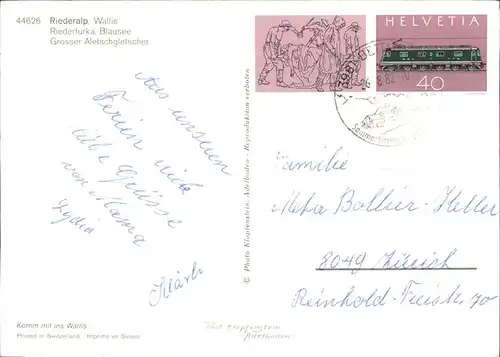 44626 Riederalp, Wallis
Riederfurka, Blausee
Grosser Aletschgletscher
Aus unseren
Ferien viele
liebe Grüsse
von Mama
Lydia
© Photo Klopfenstein, Adelboden - Reproduktion verboten
HELVETIA
40
Familie
Meta Bollier-Keller
8049 Zürich
Reinhold-Frei-str 70
Komm mit ins Wallis
Printed in Switzerland - Imprimé en Suisse
Photo Klopfenstein
Adelboden